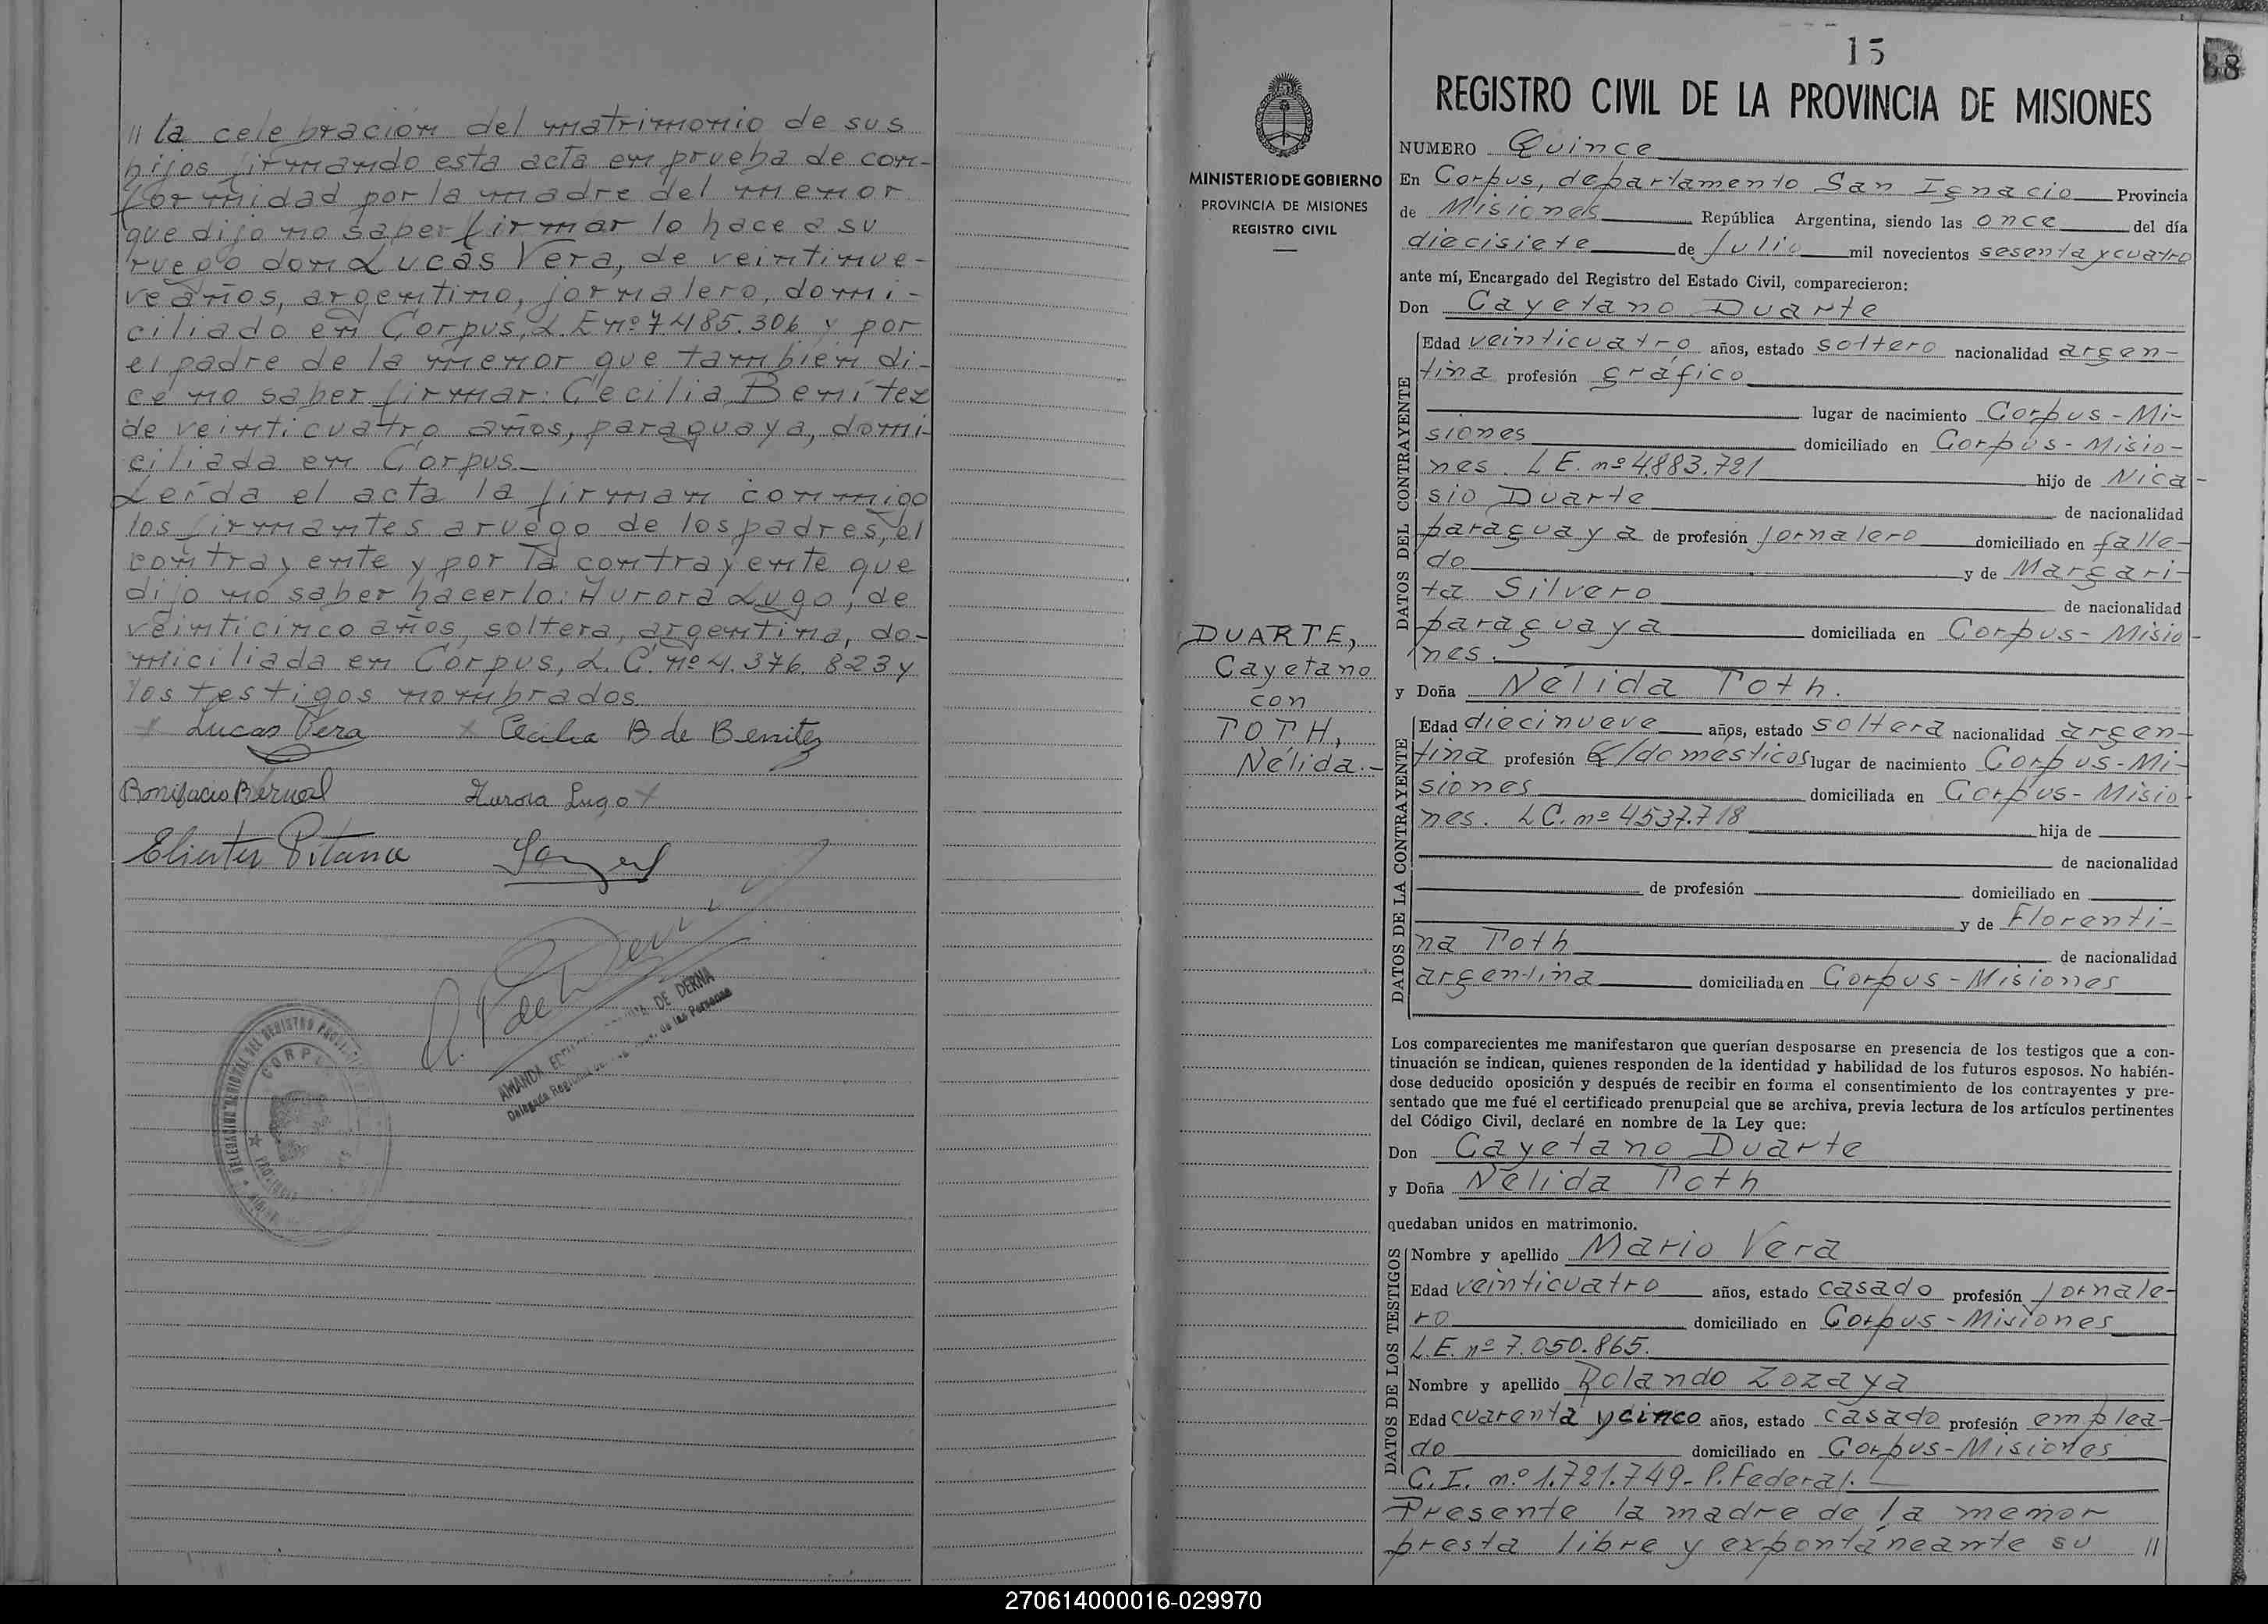 // la celebración del matrimonio de sus
hijos firmando esta acta en prueba de con-
formidad por la madre del menor
que dijo no saber firmar lo hace a su
ruego don Lucas Vera, de veintinue-
ve años, argentino, jornalero, domi-
ciliado en Corpus, L E nº 7.485.306 y por
el padre de la menor que tambien di-
ce no saber firmar: Cecilia Benítez
de veinticuatro años, paraguaya, domi-
ciliada en Corpus.
Leída el acta la firman conmigo
los firmantes a ruego de los padres, el
contrayente y por la contrayente que
dijo no saber hacerlo: Aurora Lugo, de
veinticinco años, soltera, argentina, do-
miciliada en Corpus, L. C. nº 4.376.823 y
los testigos nombrados.
x Lucas Vera x Cecilia B de Benitez
Bonifacio Bernal Aurora Lugo x
AMANDA DE DERNA
Delegada Regional de las Personas
DELEGACION REGIONAL DEL REGISTRO
CORPUS
15
88
MINISTERIO DE GOBIERNO
PROVINCIA DE MISIONES
REGISTRO CIVIL
DUARTE,
Cayetano
con
TOTH,
Nélida.-
REGISTRO CIVIL DE LA PROVINCIA DE MISIONES
NUMERO Quince
En Corpus, departamento San Ignacio Provincia
de Misiones República Argentina, siendo las once del día
diecisiete de Julio mil novecientos sesenta y cuatro
ante mí, Encargado del Registro del Estado Civil, comparecieron:
Don Cayetano Duarte
DATOS DEL CONTRAYENTE
Edad veinticuatro años, estado soltero nacionalidad argen-
tina profesión gráfico
lugar de nacimiento Corpus-Mi-
siones domiciliado en Corpus-Misio-
nes. L E. nº 4.883.721 hijo de Nica-
sio Duarte de nacionalidad
paraguaya de profesión Jornalero domiciliado en falle-
do y de Margari-
ta Silvero de nacionalidad
paraguaya domiciliada en Corpus-Misio-
nes.
y Doña Nélida Toth.
DATOS DE LA CONTRAYENTE
Edad diecinueve años, estado soltera nacionalidad argen-
tina profesión Q/domésticos lugar de nacimiento Corpus-Mi-
siones domiciliada en Corpus-Misio-
nes. L C. nº 4537.718 hija de
de nacionalidad
de profesión domiciliado en
y de Florenti-
na Toth de nacionalidad
argentina domiciliada en Corpus-Misiones
Los comparecientes me manifestaron que querían desposarse en presencia de los testigos que a con-
tinuación se indican, quienes responden de la identidad y habilidad de los futuros esposos. No habién-
dose deducido oposición y después de recibir en forma el consentimiento de los contrayentes y pre-
sentado que me fué el certificado prenupcial que se archiva, previa lectura de los artículos pertinentes
del Código Civil, declaré en nombre de la Ley que:
Don Cayetano Duarte
y Doña Nélida Toth
quedaban unidos en matrimonio.
DATOS DE LOS TESTIGOS
Nombre y apellido Mario Vera
Edad veinticuatro años, estado casado profesión Jornale-
ro domiciliado en Corpus-Misiones
L.E. nº 7.050.865.
Nombre y apellido Rolando Zozaya
Edad cuarenta y cinco años, estado casado profesión emplea-
do domiciliado en Corpus-Misiones
C.I. nº 1.721.749-P. Federal.
Presente la madre de la menor
presta libre y expontáneante su //
270614000016-029970